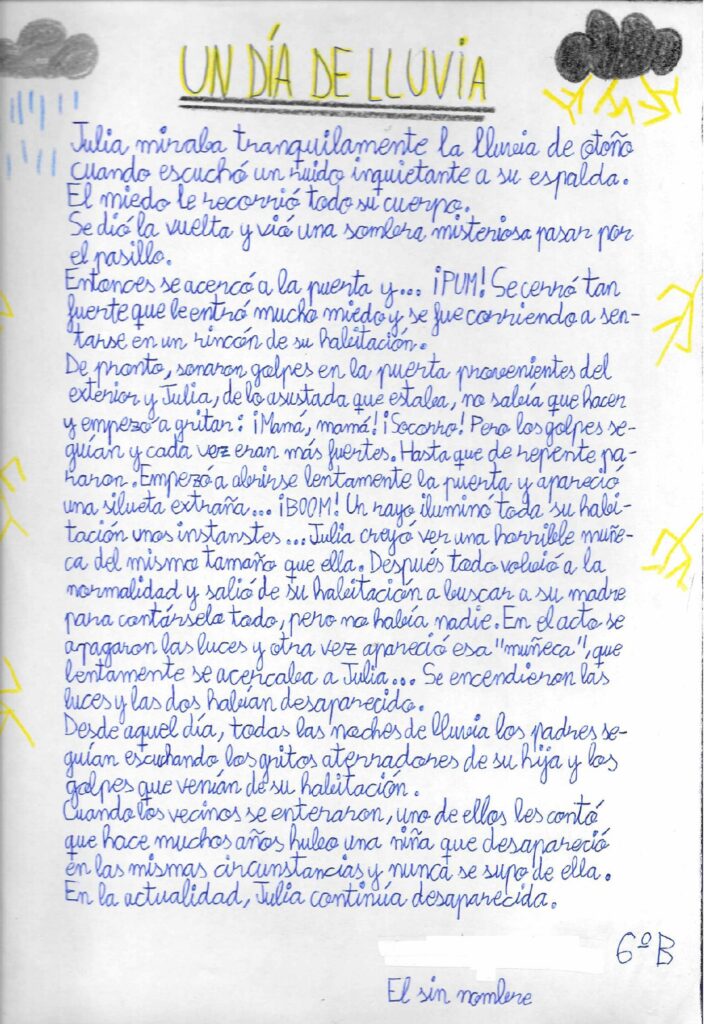 UN DÍA DE LLUVIA
Julia miraba tranquilamente la lluvia de otoño
cuando escuchó un ruido inquietante a su espalda.
El miedo le recorrió todo su cuerpo.
Se dió la vuelta y vió una sombra misteriosa pasar por
el pasillo.
Entonces se acercó a la puerta y... ¡PUM! Se cerró tan
fuerte que le entró mucho miedo y, se fue corriendo a sen-
tarse en un rincón de su habitación.
De pronto, sonaron golpes en la puerta provenientes del
exterior y Julia, de lo asustada que estaba, no sabía que hacer
y empezó a gritar: ¡Mamá, mamá! ¡Socorro! Pero los golpes se-
guían y cada vez eran más fuertes. Hasta que de repente pa-
raron. Empezó a abrirse lentamente la puerta y apareció
una silueta extraña... ¡BOOM! Un rayo iluminó toda su habi-
tación unos instanstes... Julia creyó ver una horrible muñe-
ca del mismo tamaño que ella. Después todo volvió a la
normalidad y salió de su habitación a buscar a su madre
para contárselo todo, pero no había nadie. En el acto se
apagaron las luces y otra vez apareció esa "muñeca", que
lentamente se acercaba a Julia... Se encendieron las
luces y las dos habían desaparecido.
Desde aquel día, todas las noches de lluvia los padres se-
guían escuchando los gritos aterradores de su hija y los
golpes que venían de su habitación.
Cuando los vecinos se enteraron, uno de ellos les contó
que hace muchos años hubo una niña que desapareció
en las mismas circunstancias y nunca se supo de ella.
En la actualidad, Julia continúa desaparecida.
6ºB
El sin nombre